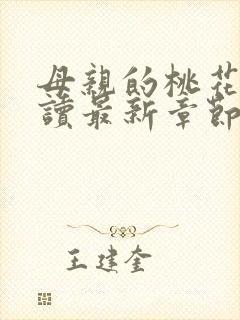 母親的桃花
讀最新章節
王建奎